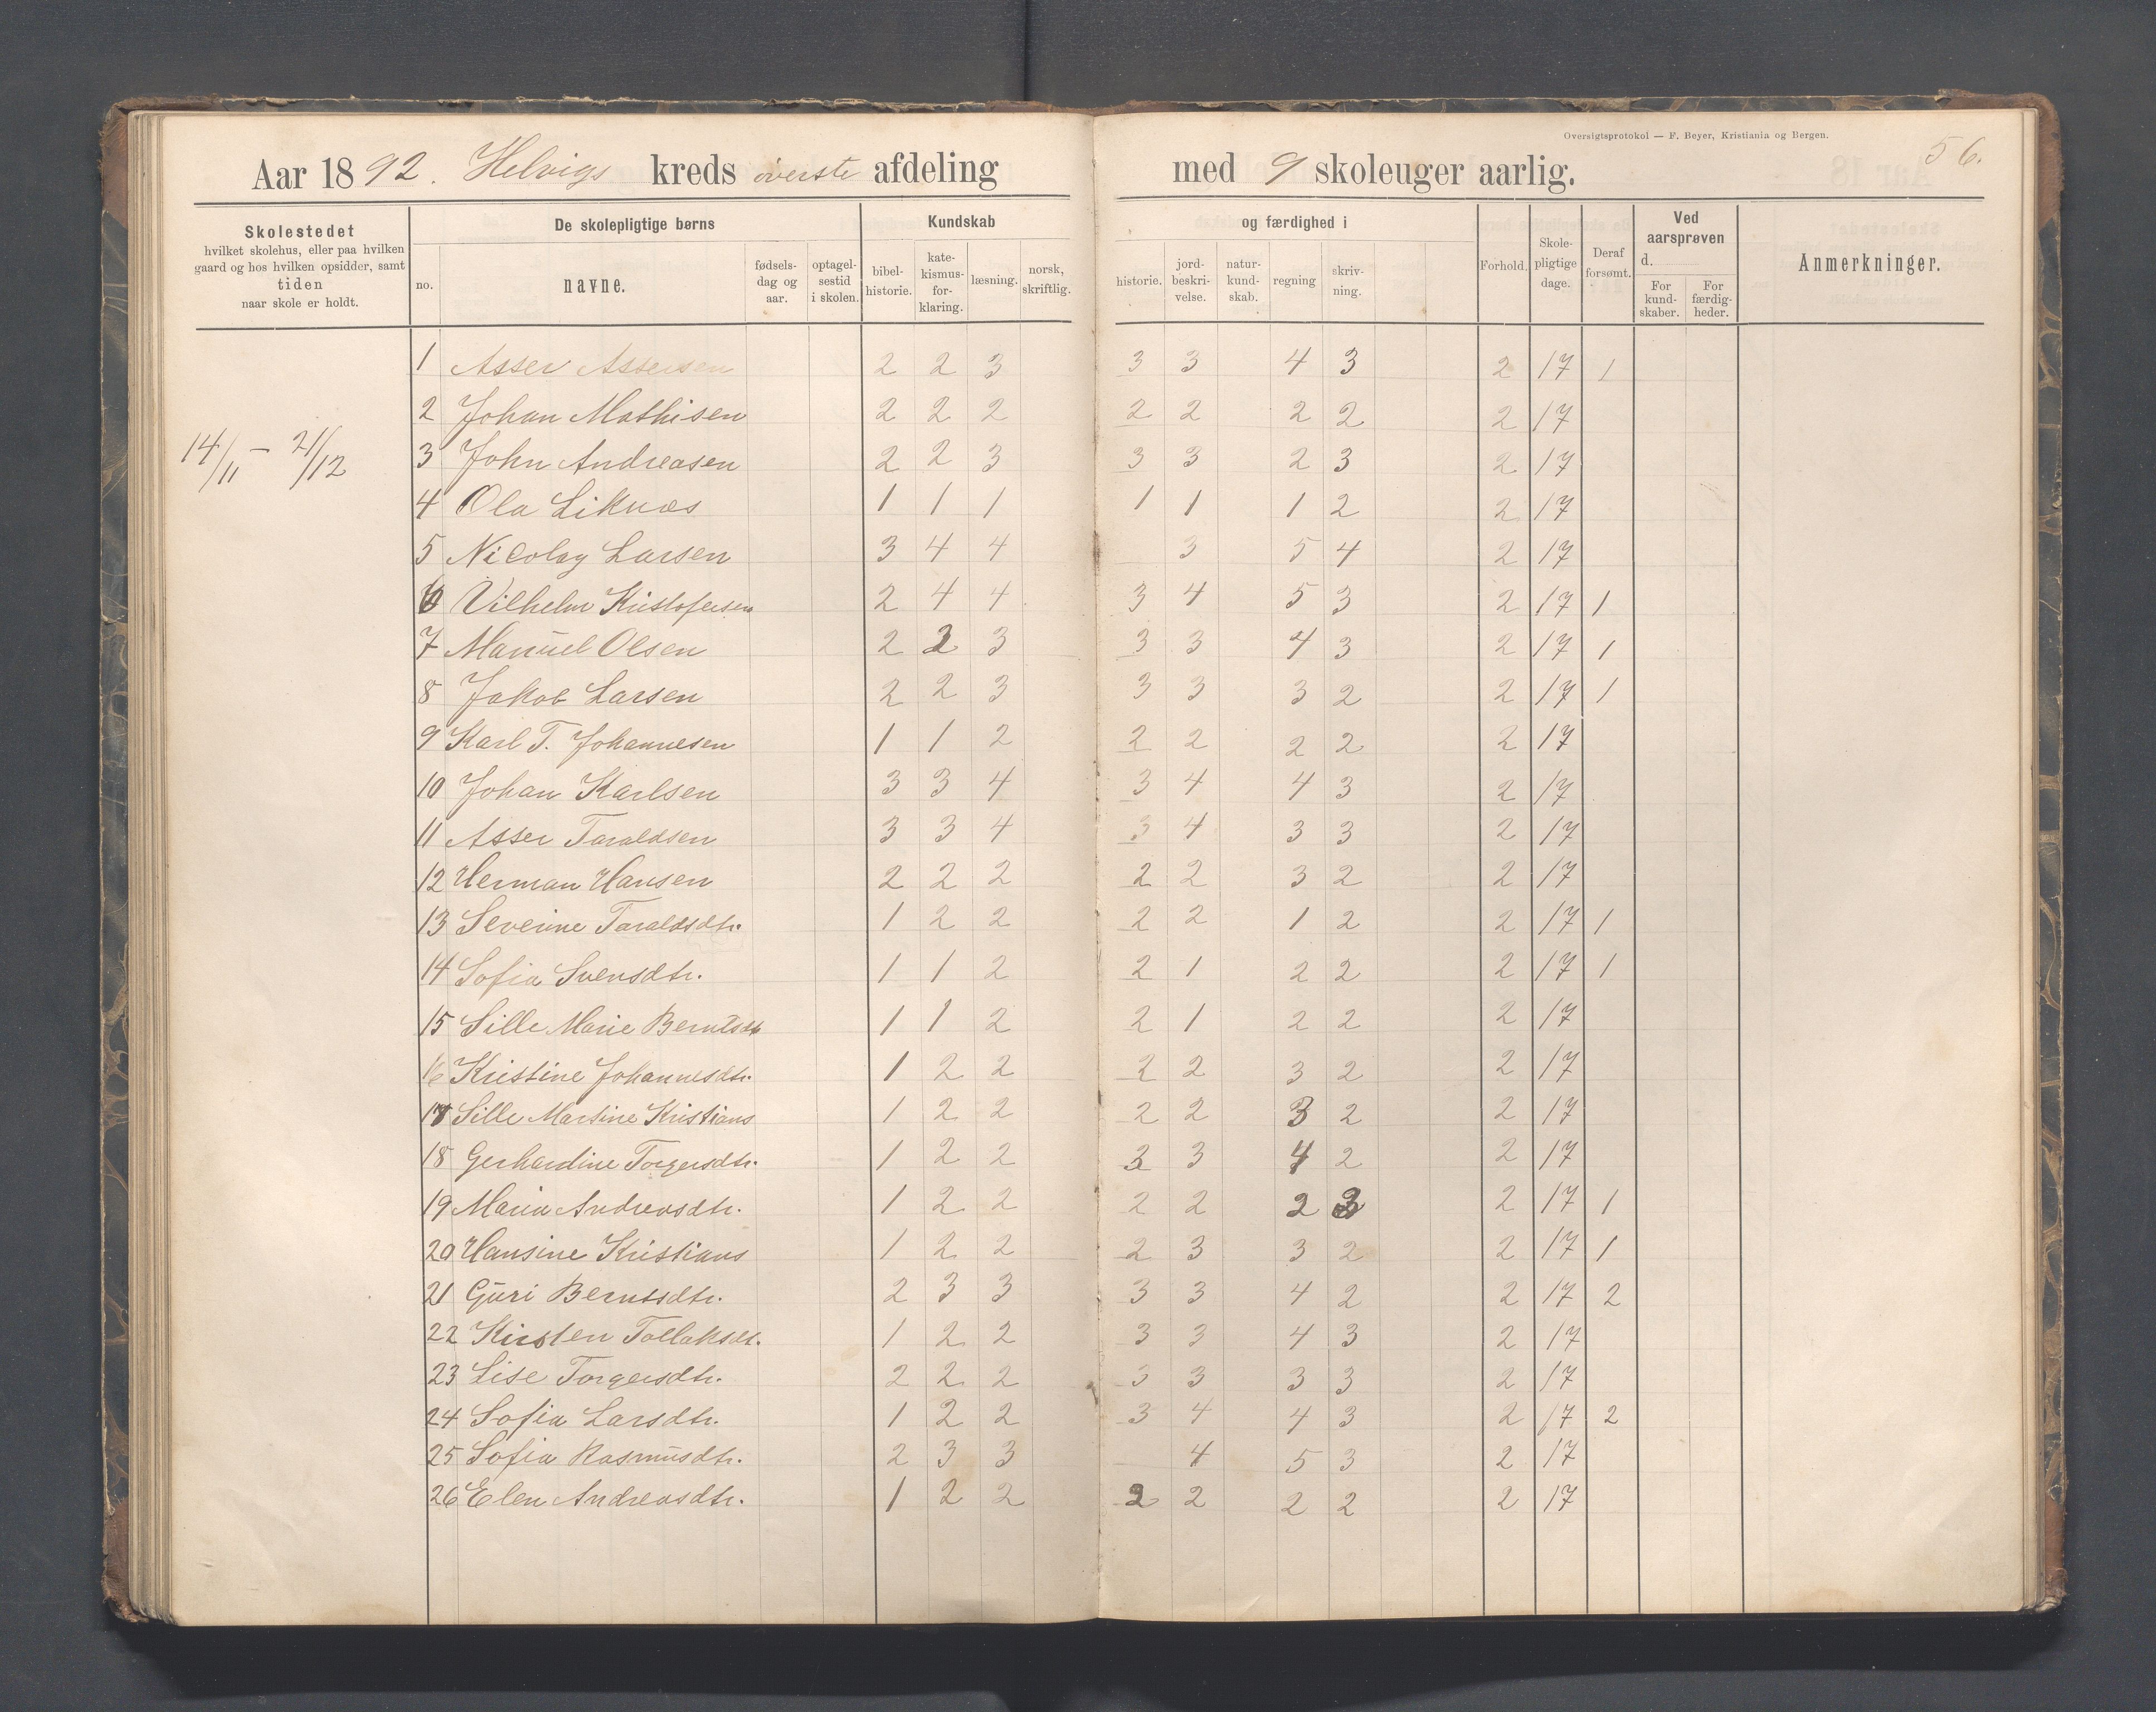 Oversigtsprotokol — F. Beyer, Kristiania og Bergen.
56.
Aar 1892. Helvigs kreds øverste afdeling med 9 skoleuger aarlig.
Skolestedet hvilket skolehus, eller paa hvilken gaard og hos hvilken opsidder, samt tiden naar skole er holdt.
De skolepligtige børns
no. navne. fødselsdag og aar. optagelsestid i skolen.
Kundskab og færdighed i
bibelhistorie. katekismusforklaring. læsning. norsk, skriftlig. historie. jordbeskrivelse. naturkundskab. regning skrivning.
Forhold. Skolepligtige dage. Deraf forsømt.
Ved aarsprøven d.
For kundskaber. For færdigheder.
Anmerkninger.
14/11 – 21/12
1 Asser Assersen 2 2 3 3 3 4 3 2 17 1
2 Johan Mathisen 2 2 2 2 2 2 2 2 17
3 John Andreasen 2 2 3 3 3 2 3 2 17
4 Ola Liknæs 1 1 1 1 1 1 2 2 17
5 Nicolay Larsen 3 4 4 3 5 4 2 17
6 Vilhelm Kristofersen 2 4 4 3 4 5 3 2 17 1
7 Manuel Olsen 2 3 3 3 4 3 2 17 1
8 Jakob Larsen 2 2 3 3 3 3 2 2 17 1
9 Karl T. Johannesen 1 1 2 2 2 2 2 2 17
10 Johan Karlsen 3 3 4 3 4 4 3 2 17
11 Asser Taraldsen 3 3 4 3 4 3 3 2 17
12 Herman Hansen 2 2 2 2 2 3 2 2 17
13 Severine Taraldsdtr. 1 2 2 2 2 1 2 2 17 1
14 Sofia Svensdtr. 1 1 2 2 1 2 2 2 17 1
15 Sille Marie Berntsdtr 1 1 2 2 1 2 2 2 17
16 Kristine Johannesdtr. 1 2 2 2 2 3 2 2 17
17 Sille Martine Kristians 1 2 2 2 2 3 2 2 17
18 Gerhardine Torgersdtr. 1 2 2 3 3 4 2 2 17
19 Maria Andreasdtr. 1 2 2 2 2 2 3 2 17 1
20 Hansine Kristians 1 2 2 2 3 3 2 2 17 1
21 Guri Berntsdtr. 2 3 3 3 3 4 2 2 17 2
22 Kirsten Tollaksdt. 1 2 2 3 3 4 3 2 17
23 Lise Torgersdtr. 2 2 2 3 3 3 3 2 17
24 Sofia Larsdtr. 1 2 2 3 4 4 3 2 17 2
25 Sofia Rasmusdtr. 2 3 3 4 5 3 2 17
26 Elen Andreasdtr. 1 2 2 2 2 2 2 2 17